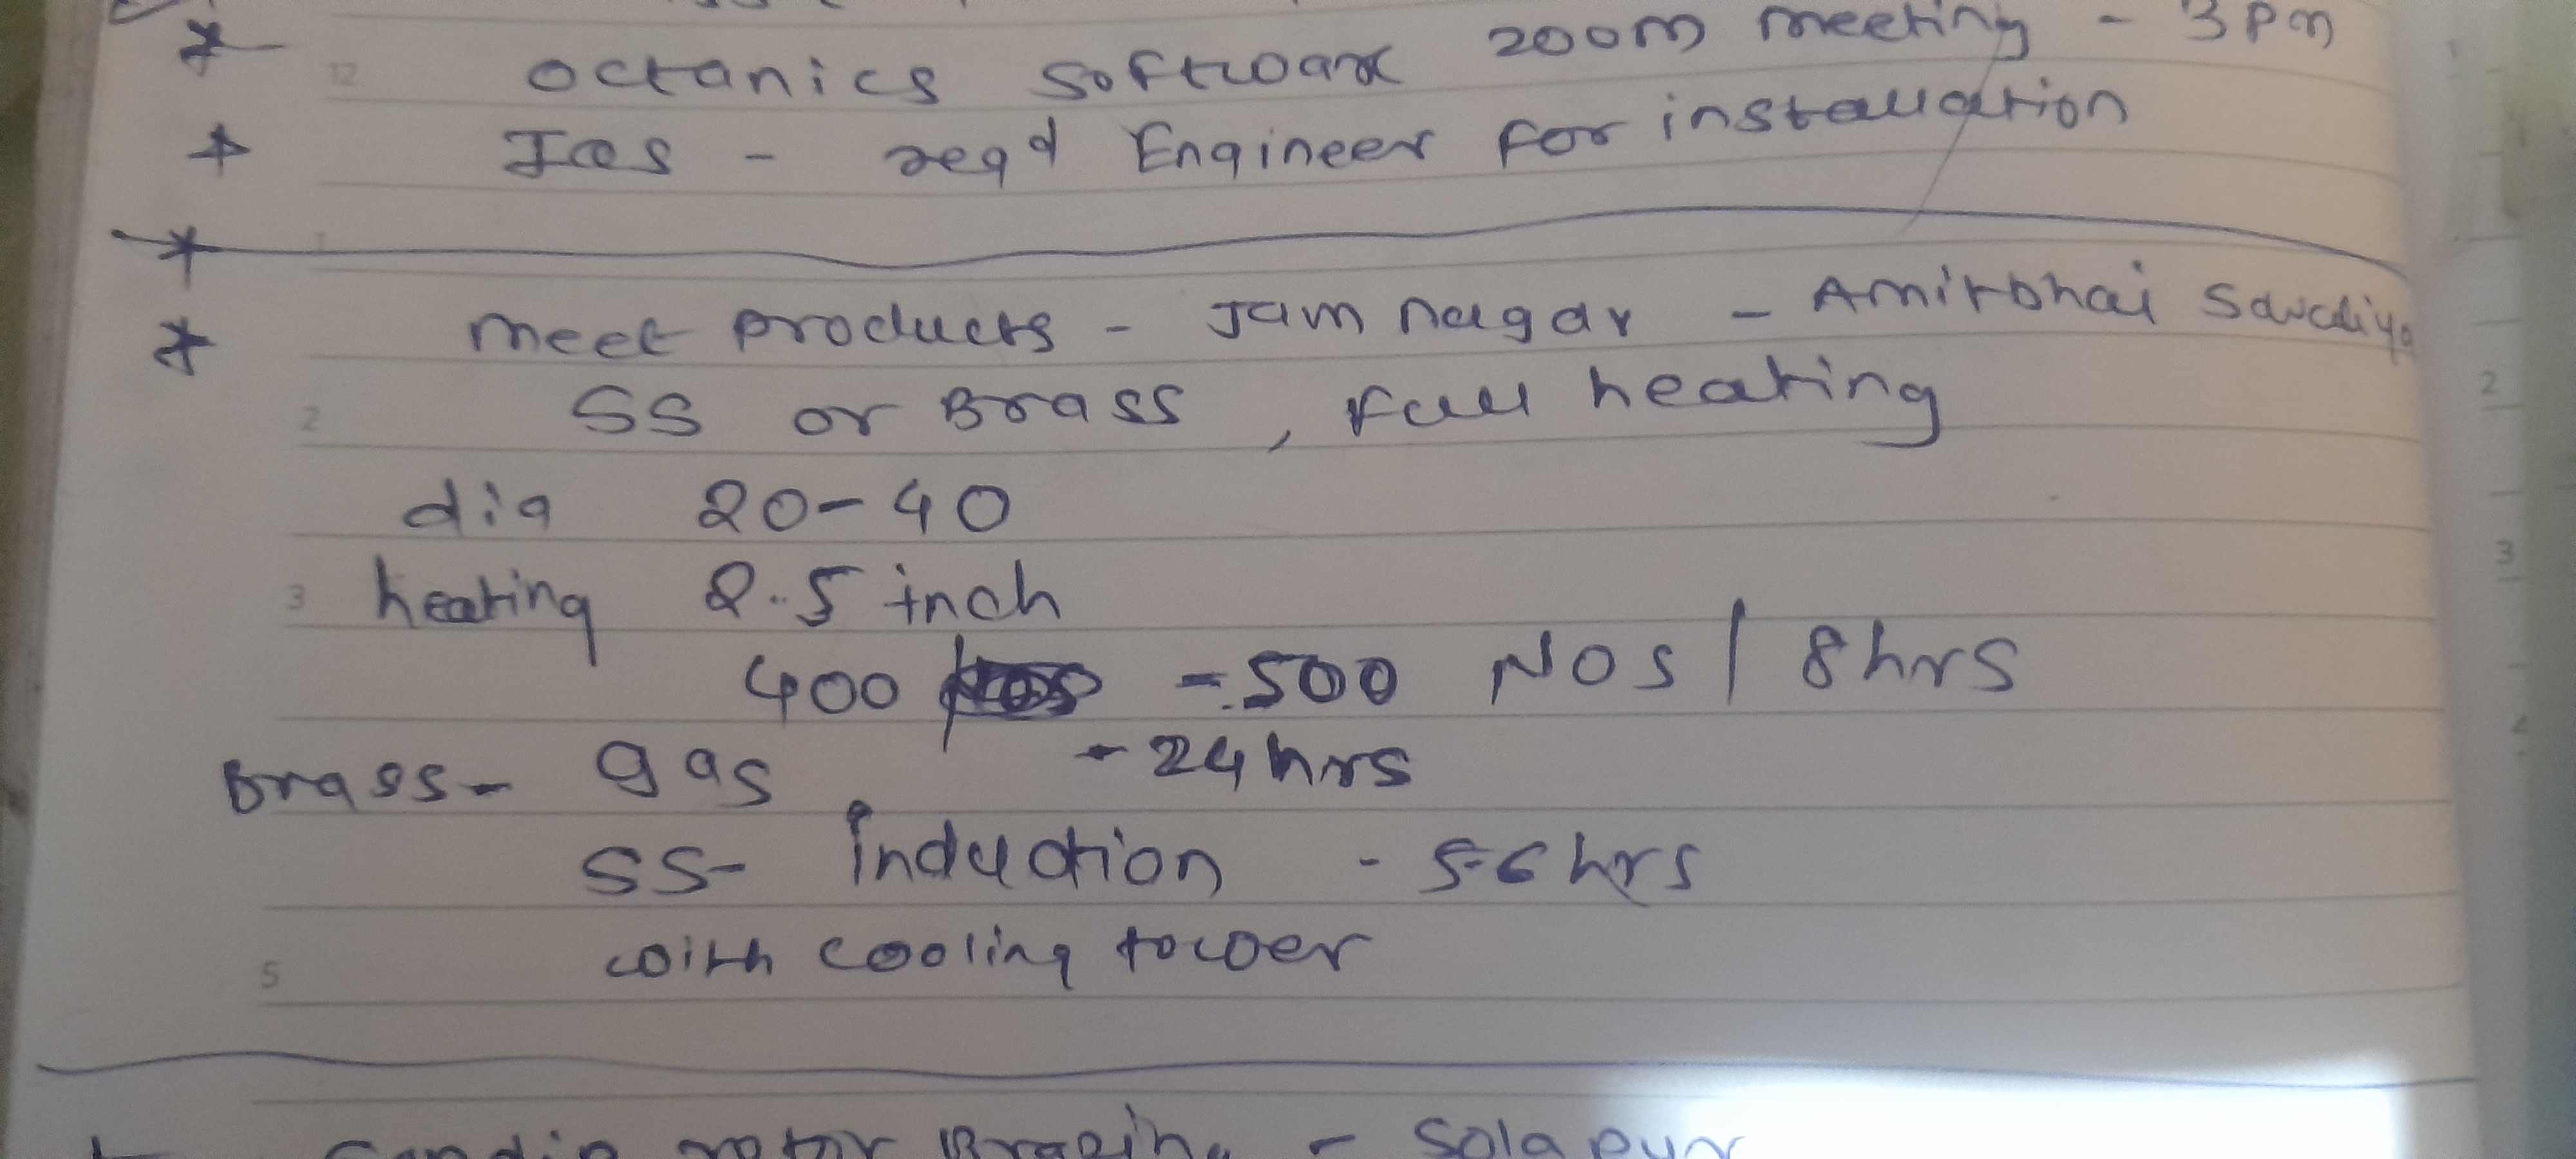 * octanics software zoom meeting - 3 pm
12
* - reqd Engineer for installation
*
1
* meet products - Jamnagar - Amitbhai
2 SS or Brass , full heating
2
dia 20-40
3 heating 2.5 inch
3
400 - 500 NOS / 8hrs
Brass - gas - 24 hrs
SS - Induction - 5-6 hrs
with cooling tower
5
rotor Brazing - Solapur